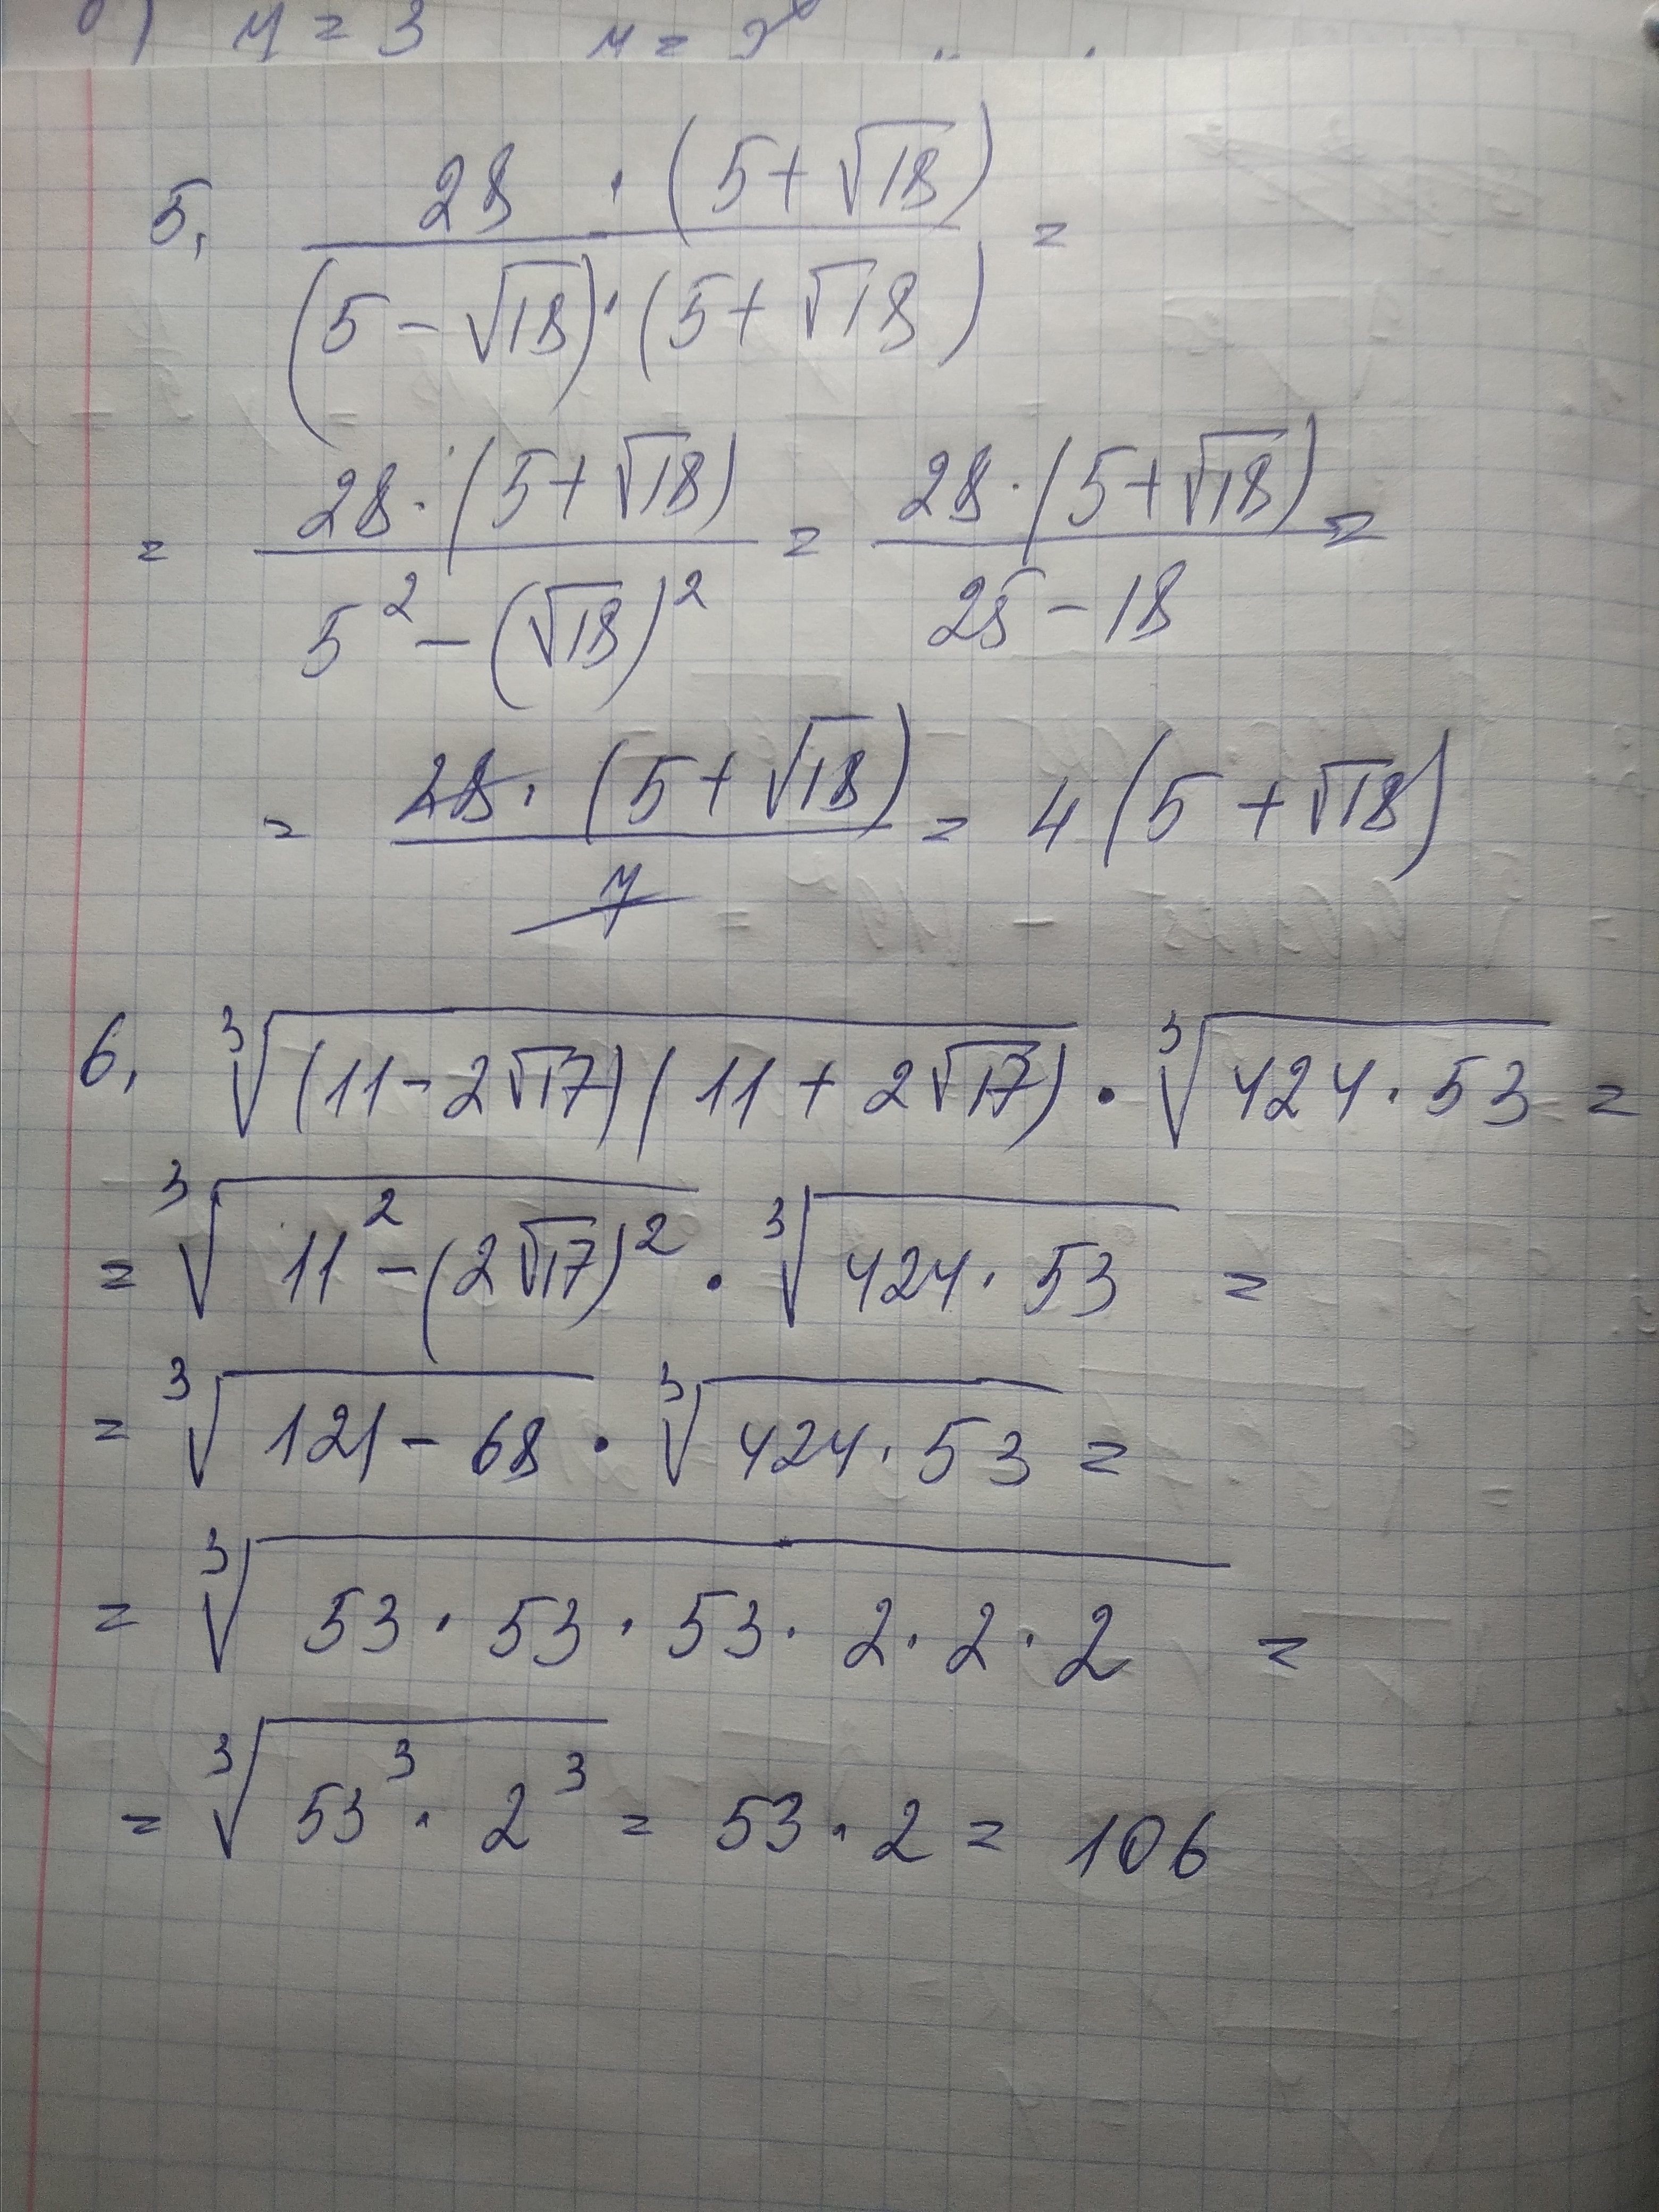 y = 3
5, 28 · (5+√18) / (5-√18)·(5+√18) =
= 28·(5+√18) / 5² - (√18)² = 28·(5+√18) / 25-18 =
= 28·(5+√18) / 7 = 4(5+√18)
6, ³√(11-2√17)(11+2√17) · ³√424·53 =
= ³√11² - (2√17)² · ³√424·53 =
= ³√121-68 · ³√424·53 =
= ³√53·53·53·2·2·2 =
= ³√53³·2³ = 53·2 = 106